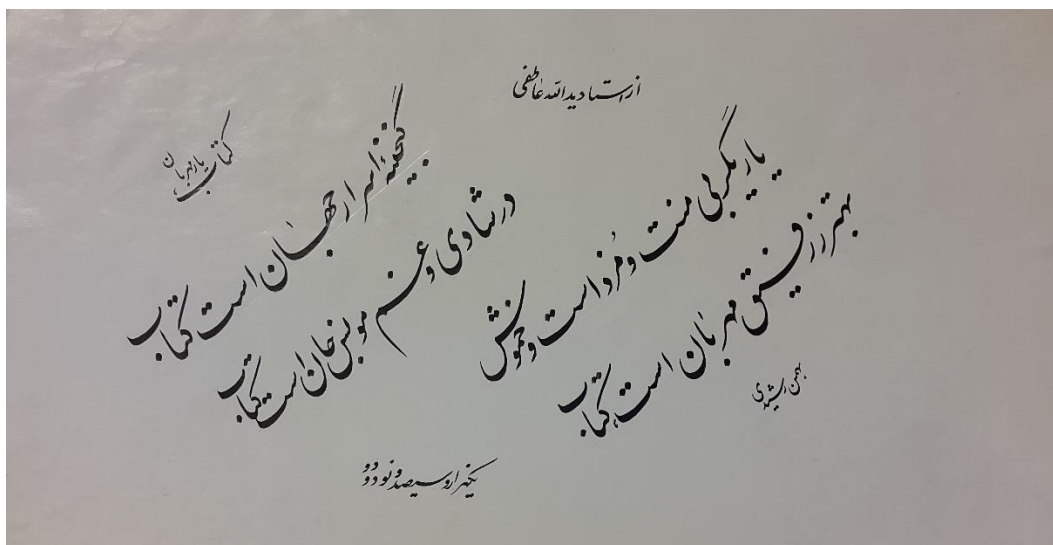 از استاد یدالله عاطفی
کتاب یار مهربان
گنجینهٔ اسرار جهان است کتاب
در شادی و غم مونس جان است کتاب
یاریگر بی منت و مُزد است و خموش
بهتر ز رفیق مهربان است کتاب
بهمن رشیدی
یکهزار و سیصد و نود و دو